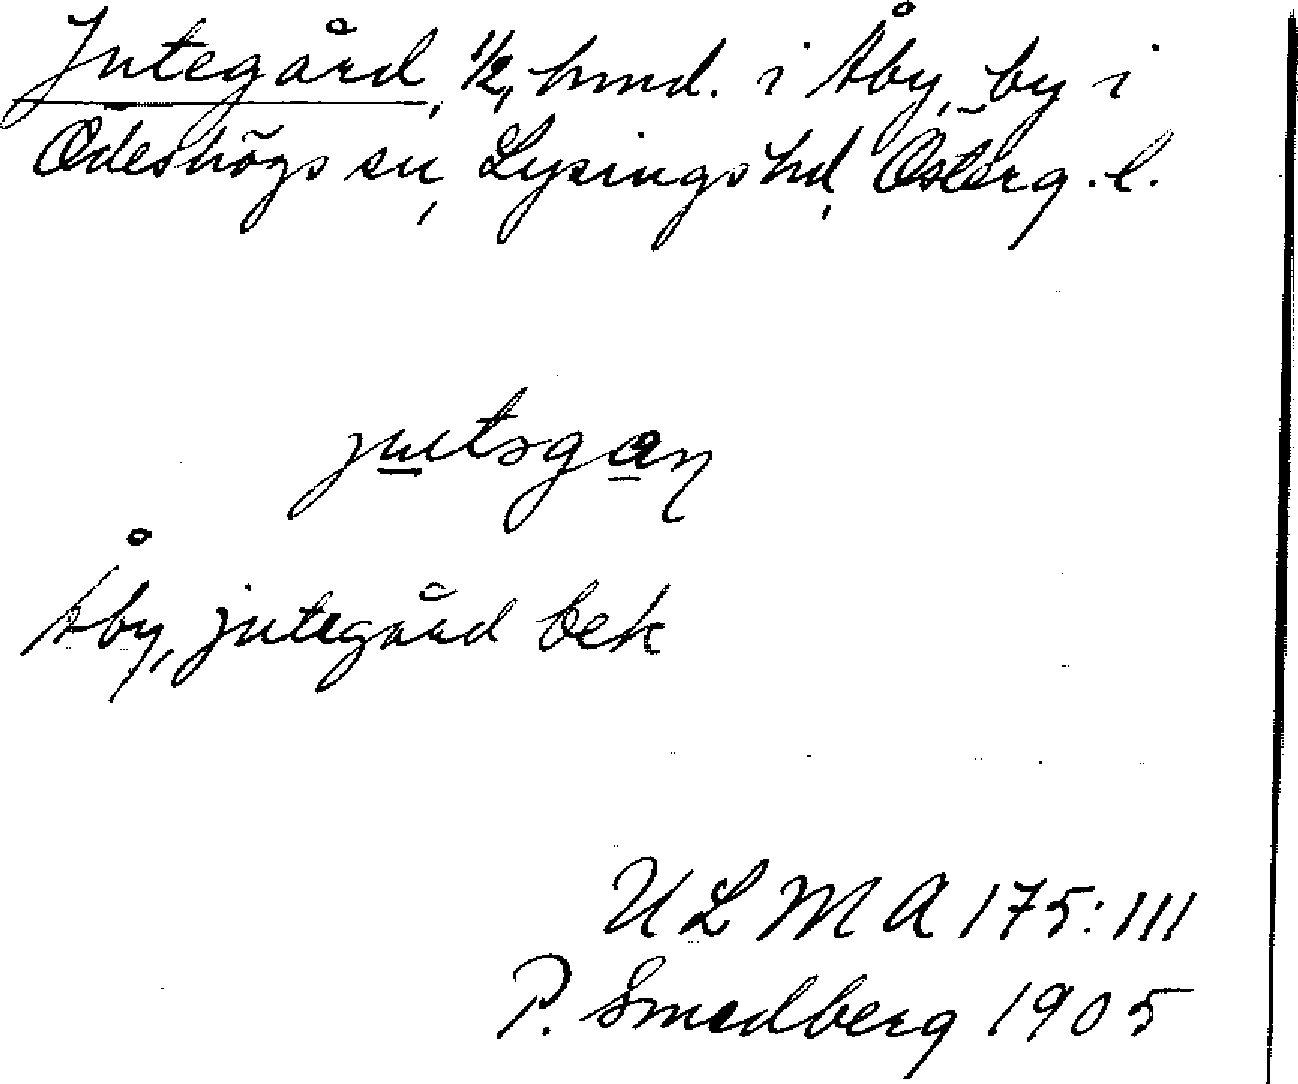 Jutegård, 1/2, hmd. i Åby, by i
Ödeshögs sn, Lysings hd, Österg. l.
jutəgaɳ
Åby, jutegård bek
ULMA 175:111
P. Smedberg 1905